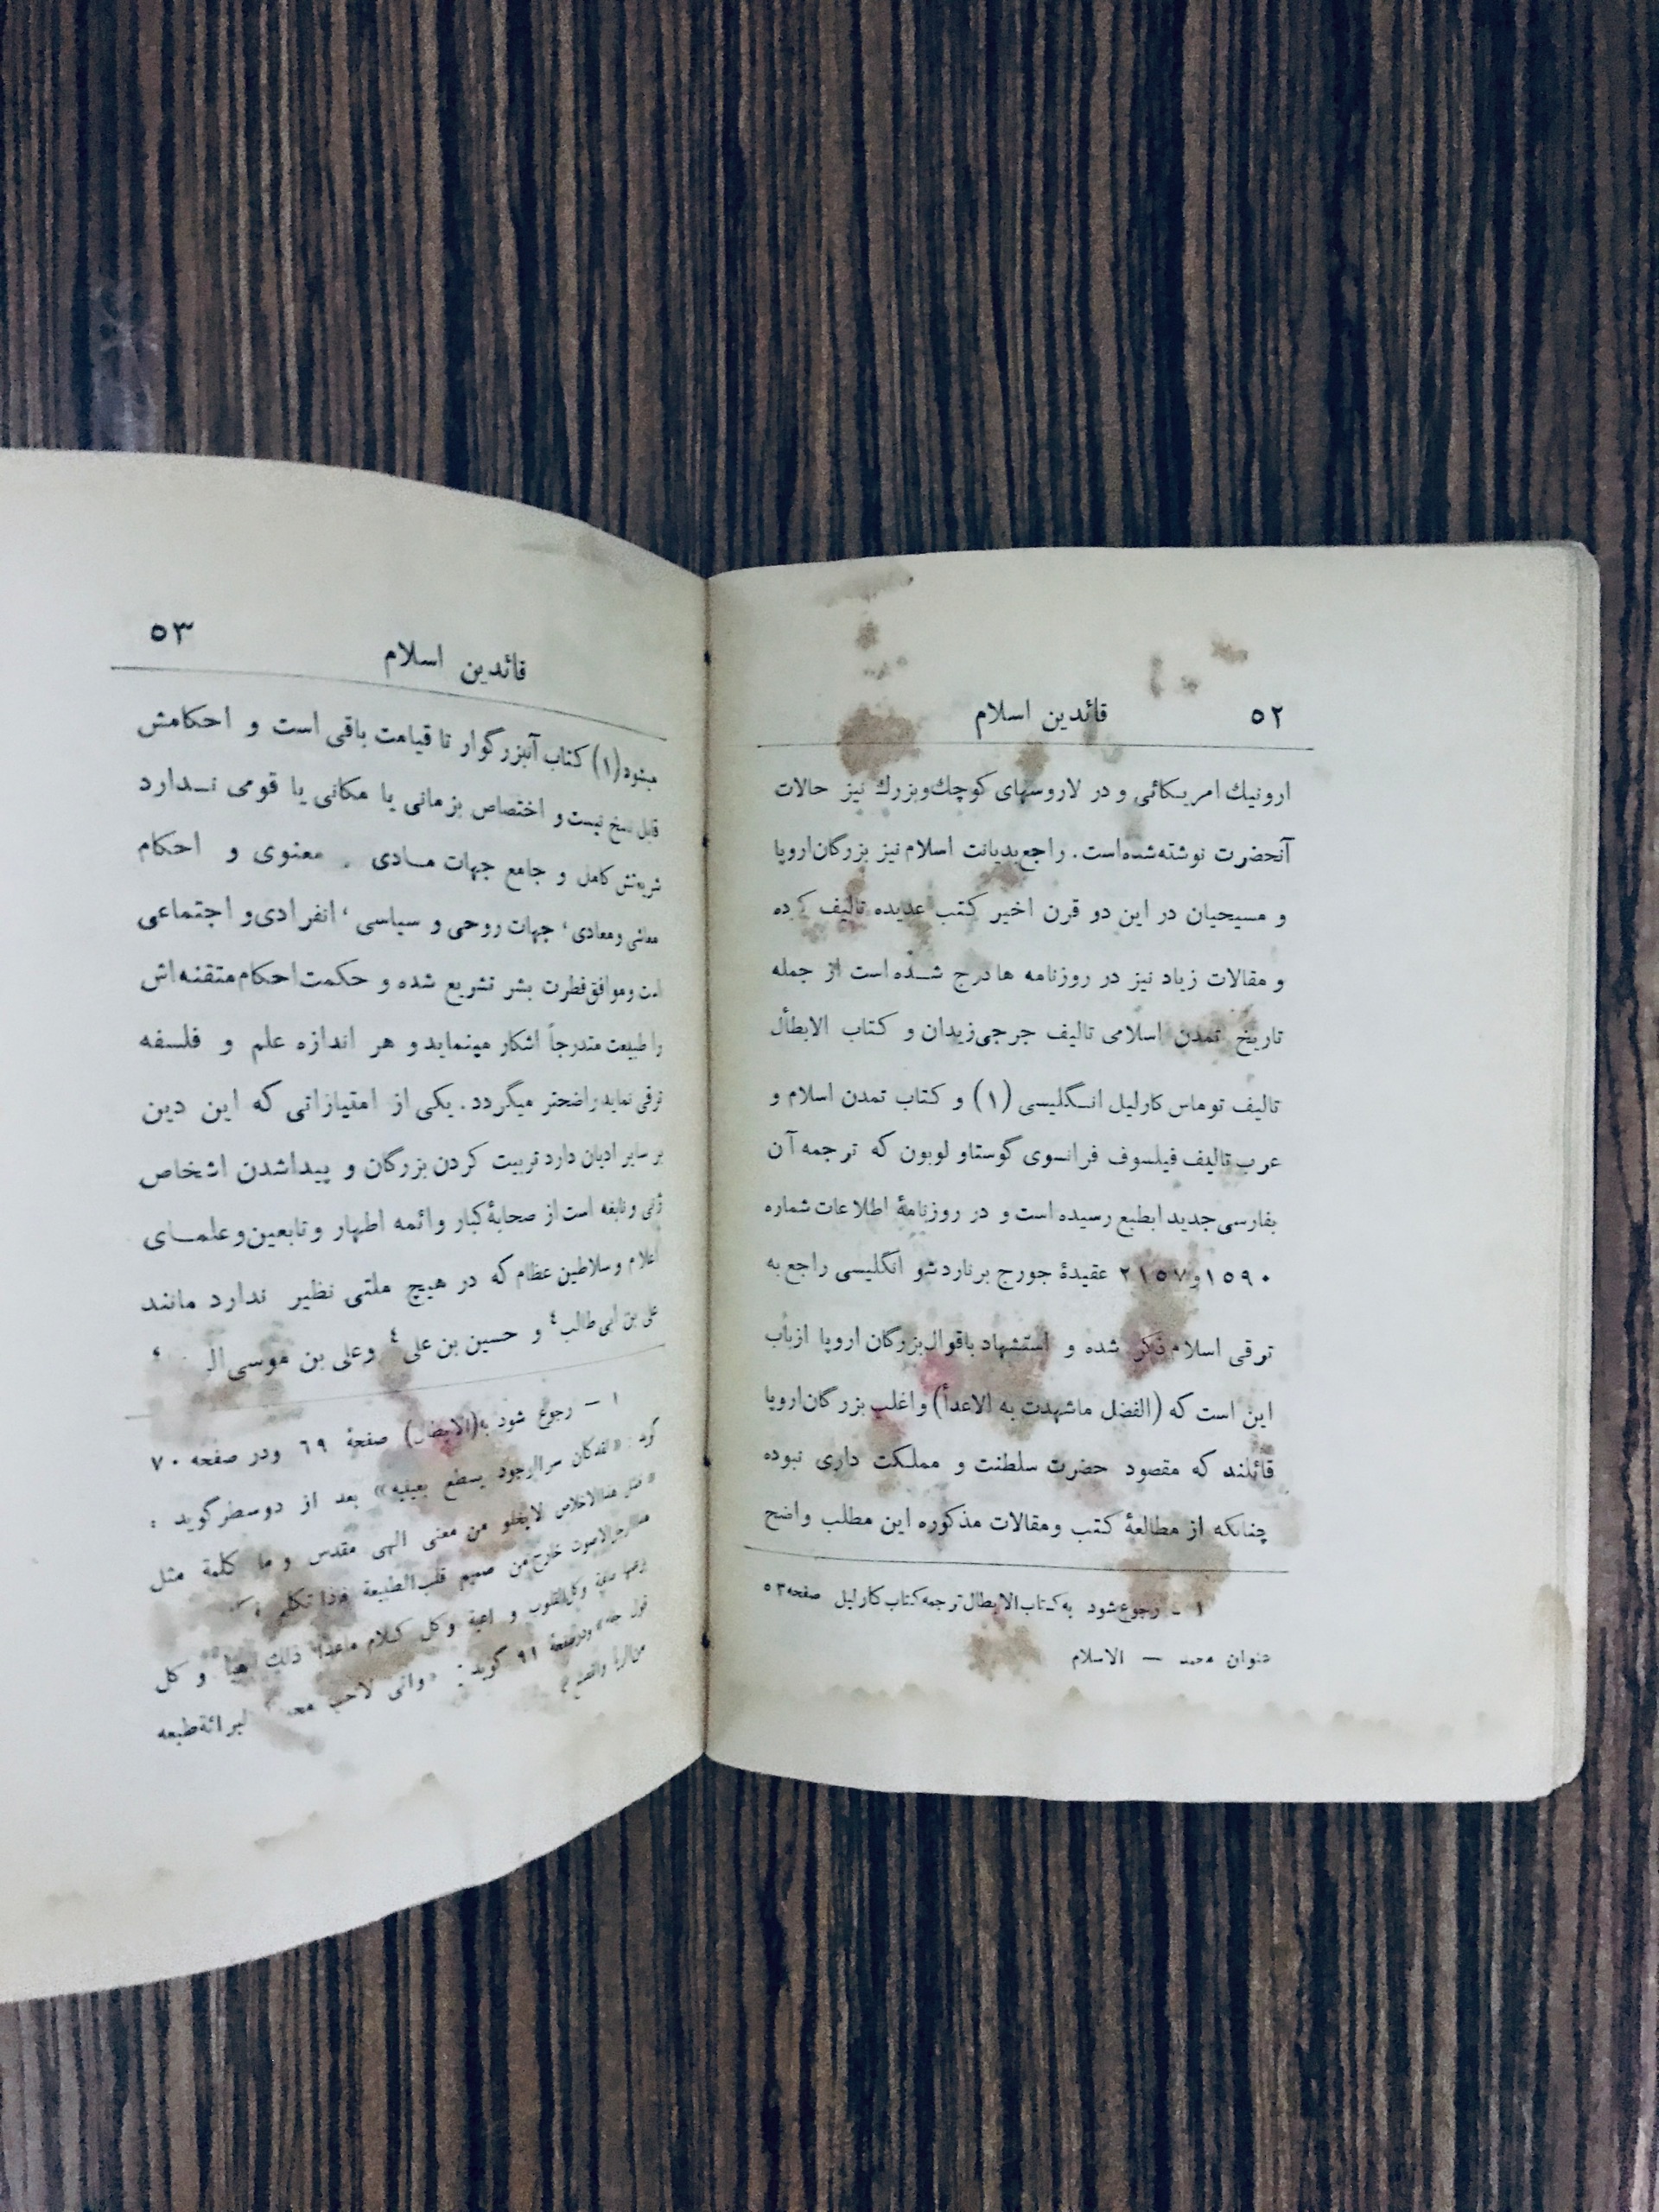 ۵۲ قائدین اسلام
ارونیك امریکائی و در لاروسهای کوچك‌وبزرك نیز حالات
آنحضرت نوشته‌شده‌است. راجع‌بدیانت اسلام نیز بزرگان‌اروپا
و مسیحیان در این دو قرن اخیر کتب عدیده تالیف
و مقالات زیاد نیز در روزنامه ها درج شده‌است از جمله
تاریخ تمدن اسلامی تالیف جرجی‌زیدان و کتاب الابطال
تالیف توماس کارلیل انگلیسی (۱) و کتاب تمدن اسلام و
عرب تالیف فیلسوف فرانسوی گوستاو لوبون که ترجمه آن
بفارسی جدید ابطبع رسیده است و در روزنامهٔ اطلاعات شماره
۱۵۹۰ و ۲۱۵۷ عقیدهٔ جورج برنارد شو انگلیسی راجع به
ترقی اسلام ذکر شده و استشهاد باقوال بزرگان اروپا ازباب
این است که (الفضل ماشهدت به الاعدأ) و اغلب بزرگان‌اروپا
قائلند که مقصود حضرت سلطنت و مملکت داری نبوده
چنانکه از مطالعهٔ کتب ومقالات مذکوره این مطلب واضح
۱ - رجوع شود به‌کتاب الابطال ترجمه کتاب کارلیل صفحه ۵۳
عنوان محمد — الاسلام
قائدین اسلام ۵۳
میشود (۱) کتاب آنبزرگوار تا قیامت باقی است و احکامش
قابل نسخ نیست و اختصاص بزمانی یا مکانی یا قومی ندارد
شریعتش کامل و جامع جهات مادی معنوی و احکام
معاشی ومعادی، جهات روحی و سیاسی، انفرادی و اجتماعی
است وموافق فطرت بشر تشریع شده و حکمت احکام متقنه‌اش
را طبیعت متدرجاً اشکار مینماید و هر اندازه علم و فلسفه
ترقی نماید راضحتر میگردد. یکی از امتیازاتی که این دین
بر سایر ادیان دارد تربیت کردن بزرگان و پیداشدن اشخاص
ژنی و نابغه است از صحابهٔ کبار وائمه اطهار وتابعین وعلمای
اعلام وسلاطین عظام که در هیچ ملتی نظیر ندارد مانند
علی بن ابی طالب ع و حسین بن علی ع وعلی بن موسی
۱ — رجوع شود به (الابطال) صفحهٔ ۶۹ ودر صفحه ۷۰
گوید: «لقدکان سرالوجود یسطع بعینیه» بعد از دوسطر گوید :
«مثل هذا الاخلاص لایخلو من معنی الهی مقدس وما کلمة مثل
هذا الرجل الاصوت خارج من صمیم قلب الطبیعة فاذا تکلم
وکل القلوب و اعیة وکل کلام ماعدا ذلك هبا و کل
قول جفاء» ودرصفحهٔ ۹۱ گوید: «وانی لاحب لبرائة طبعه
من الریا والتصنع»